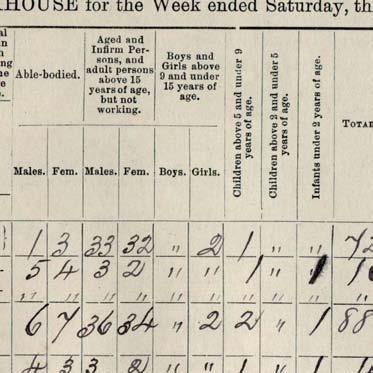 RHOUSE for the Week ended Saturday, th
Able-bodied.
Aged and
Infirm Per-
sons, and
adult persons
above 15
years of age,
but not
working.
Boys and
Girls above
9 and under
15 years of
age.
Children above 5 and under 9
years of age.
Children above 2 and under 5
years of age.
Infants under 2 years of age.
TOTA
Males. Fem. Males. Fem. Boys. Girls.
1 3 33 32 " 2 1 " " 72
5 4 3 2 " " 1 " 1 1
" " " " " " " " " "
6 7 36 34 " 2 2 " 1 88
4 3 3 2 " " 1 " 1 1